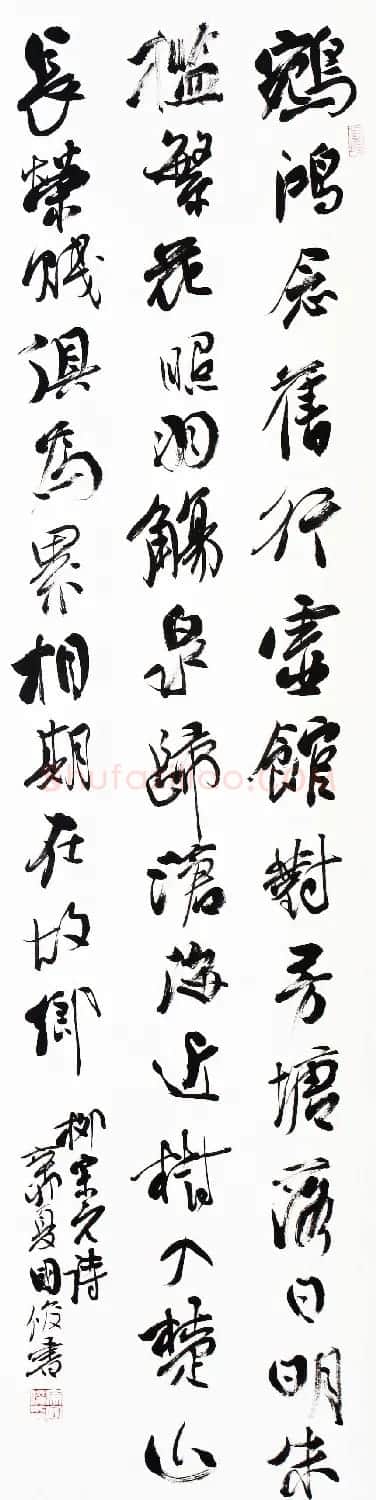 鵷鴻念舊行虛館對芳塘落日明朱
檻繁花照羽觴泉歸滄海近樹入楚山
長榮賤俱為累相期在故鄉
柳宗元詩
辛卯夏国俊書